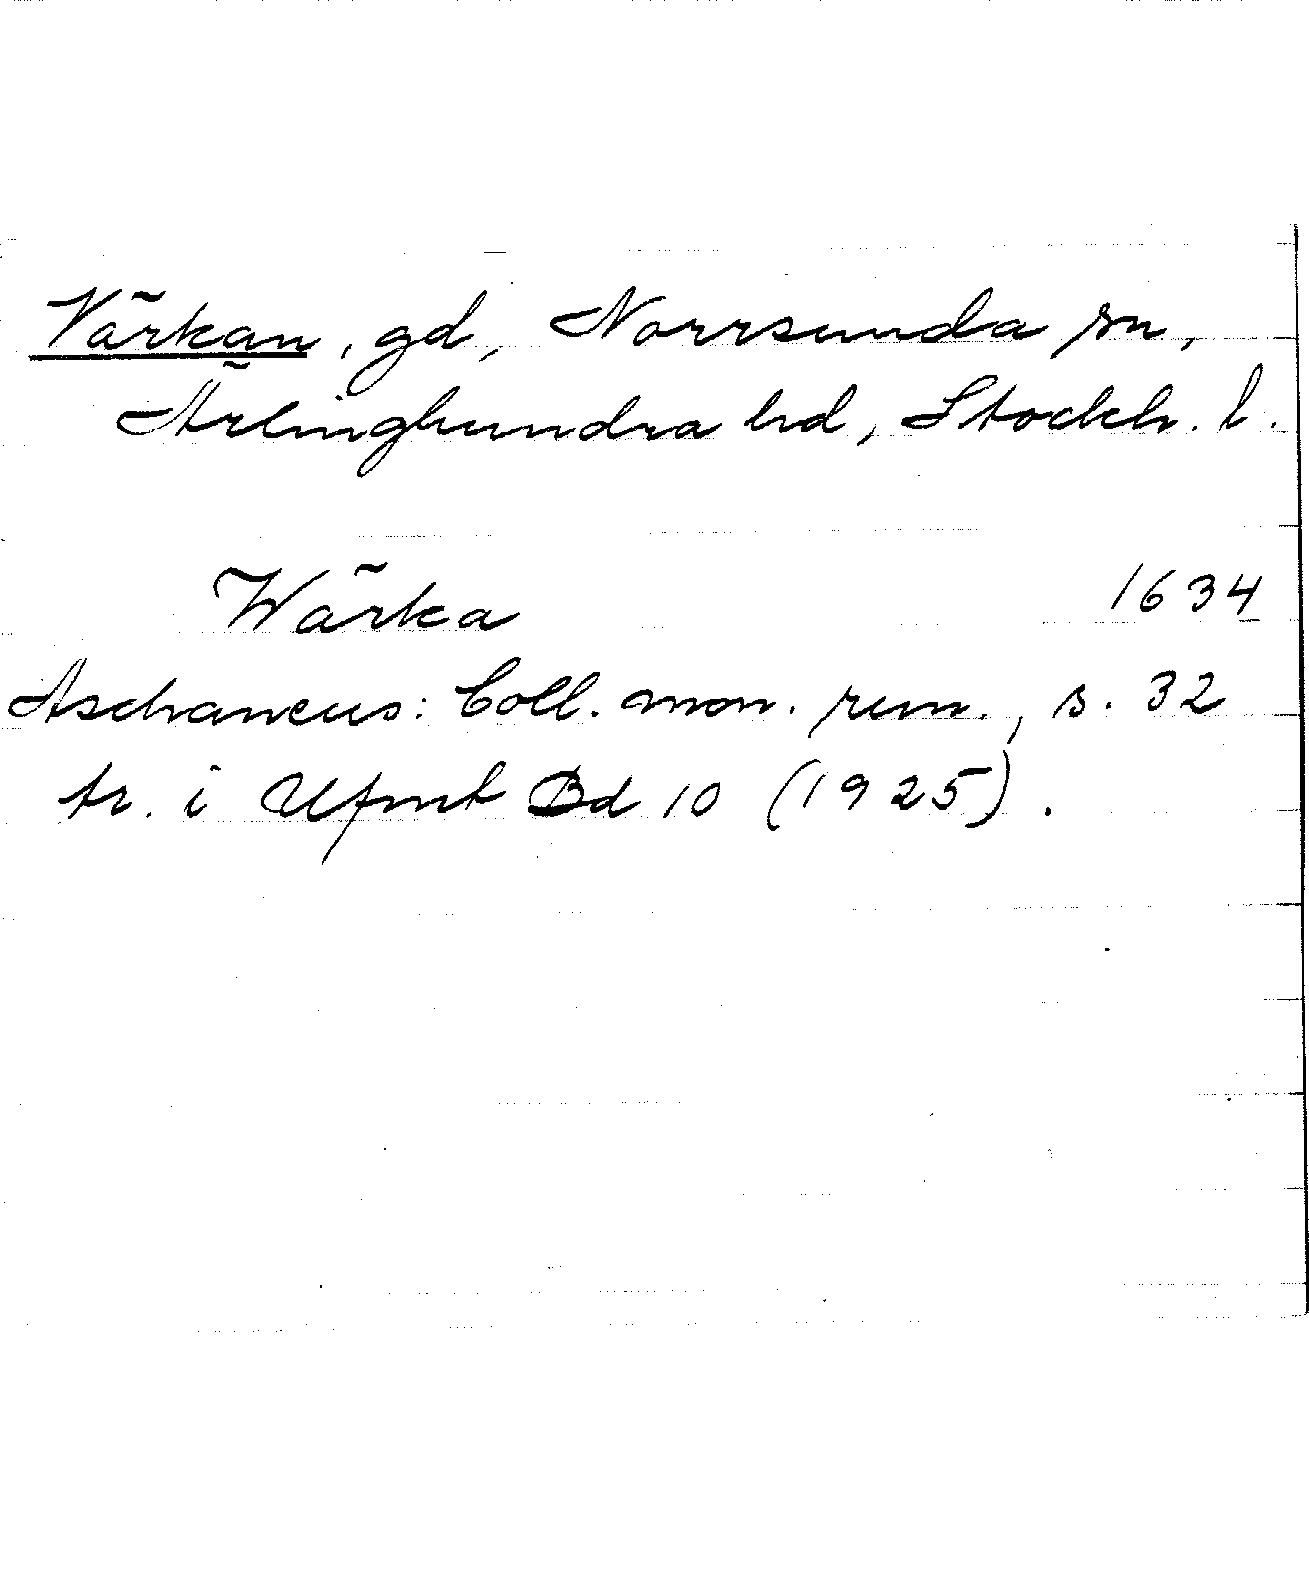 Värkan, gd, Norrsunda sn,
Ärlinghundra hd, Stockh. l.
Wärka 1634
Aschaneus: Coll. mon. run., s. 32
tr. i Ufmt Bd 10 (1925).